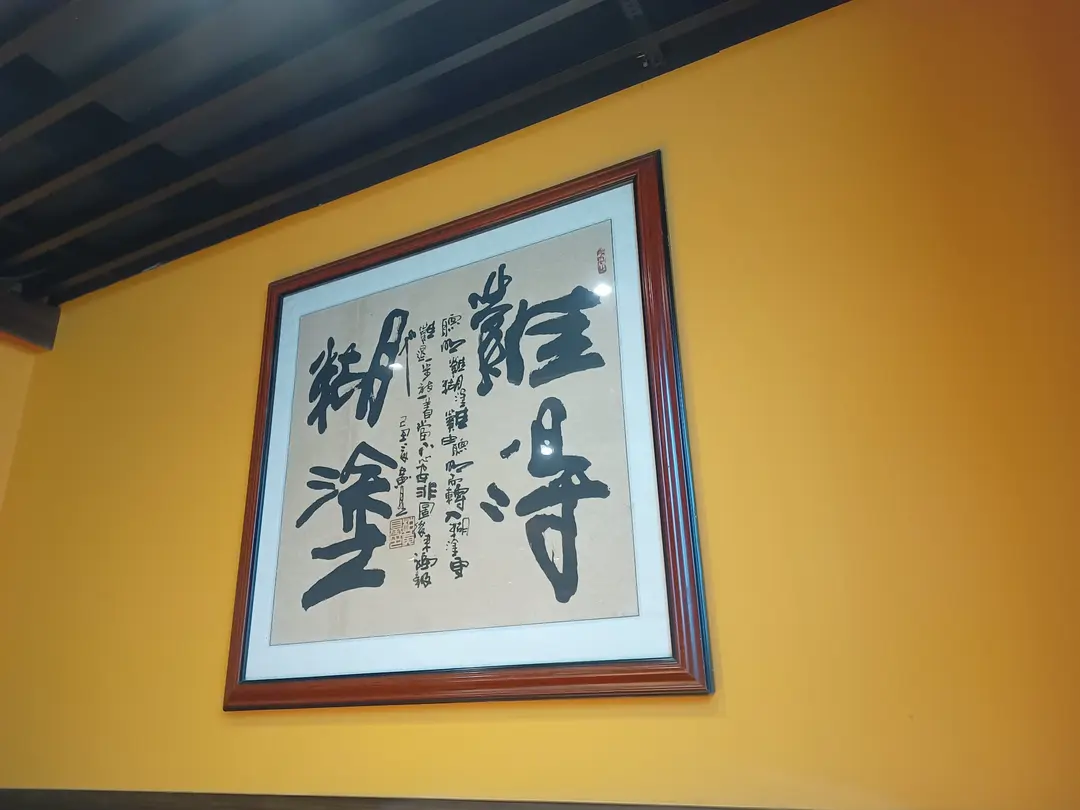 難得
聰明難糊塗難由聰明而轉入糊塗更
難退一步放一着當下心安非圖後来福報
己丑
糊塗